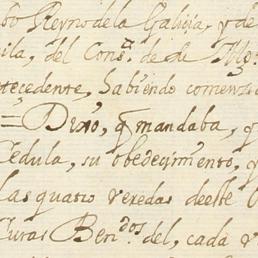 Reyno de la Galicia, y de
del Cons.º de de Mg
tecedente, habiendo comenz
= Dixo, q̃ mandaba, y
Cedula, su obedecimiento, y
Las quatro veredas de este
Curas Ben.dos del, cada v